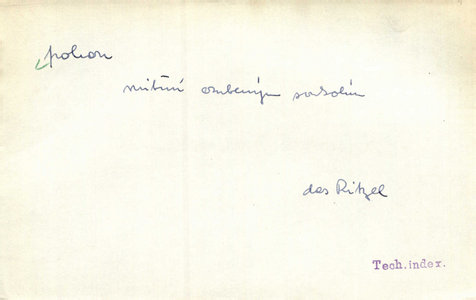 pohon
vnitřní ozubeným soukolím
das Ritzel
Tech.index.